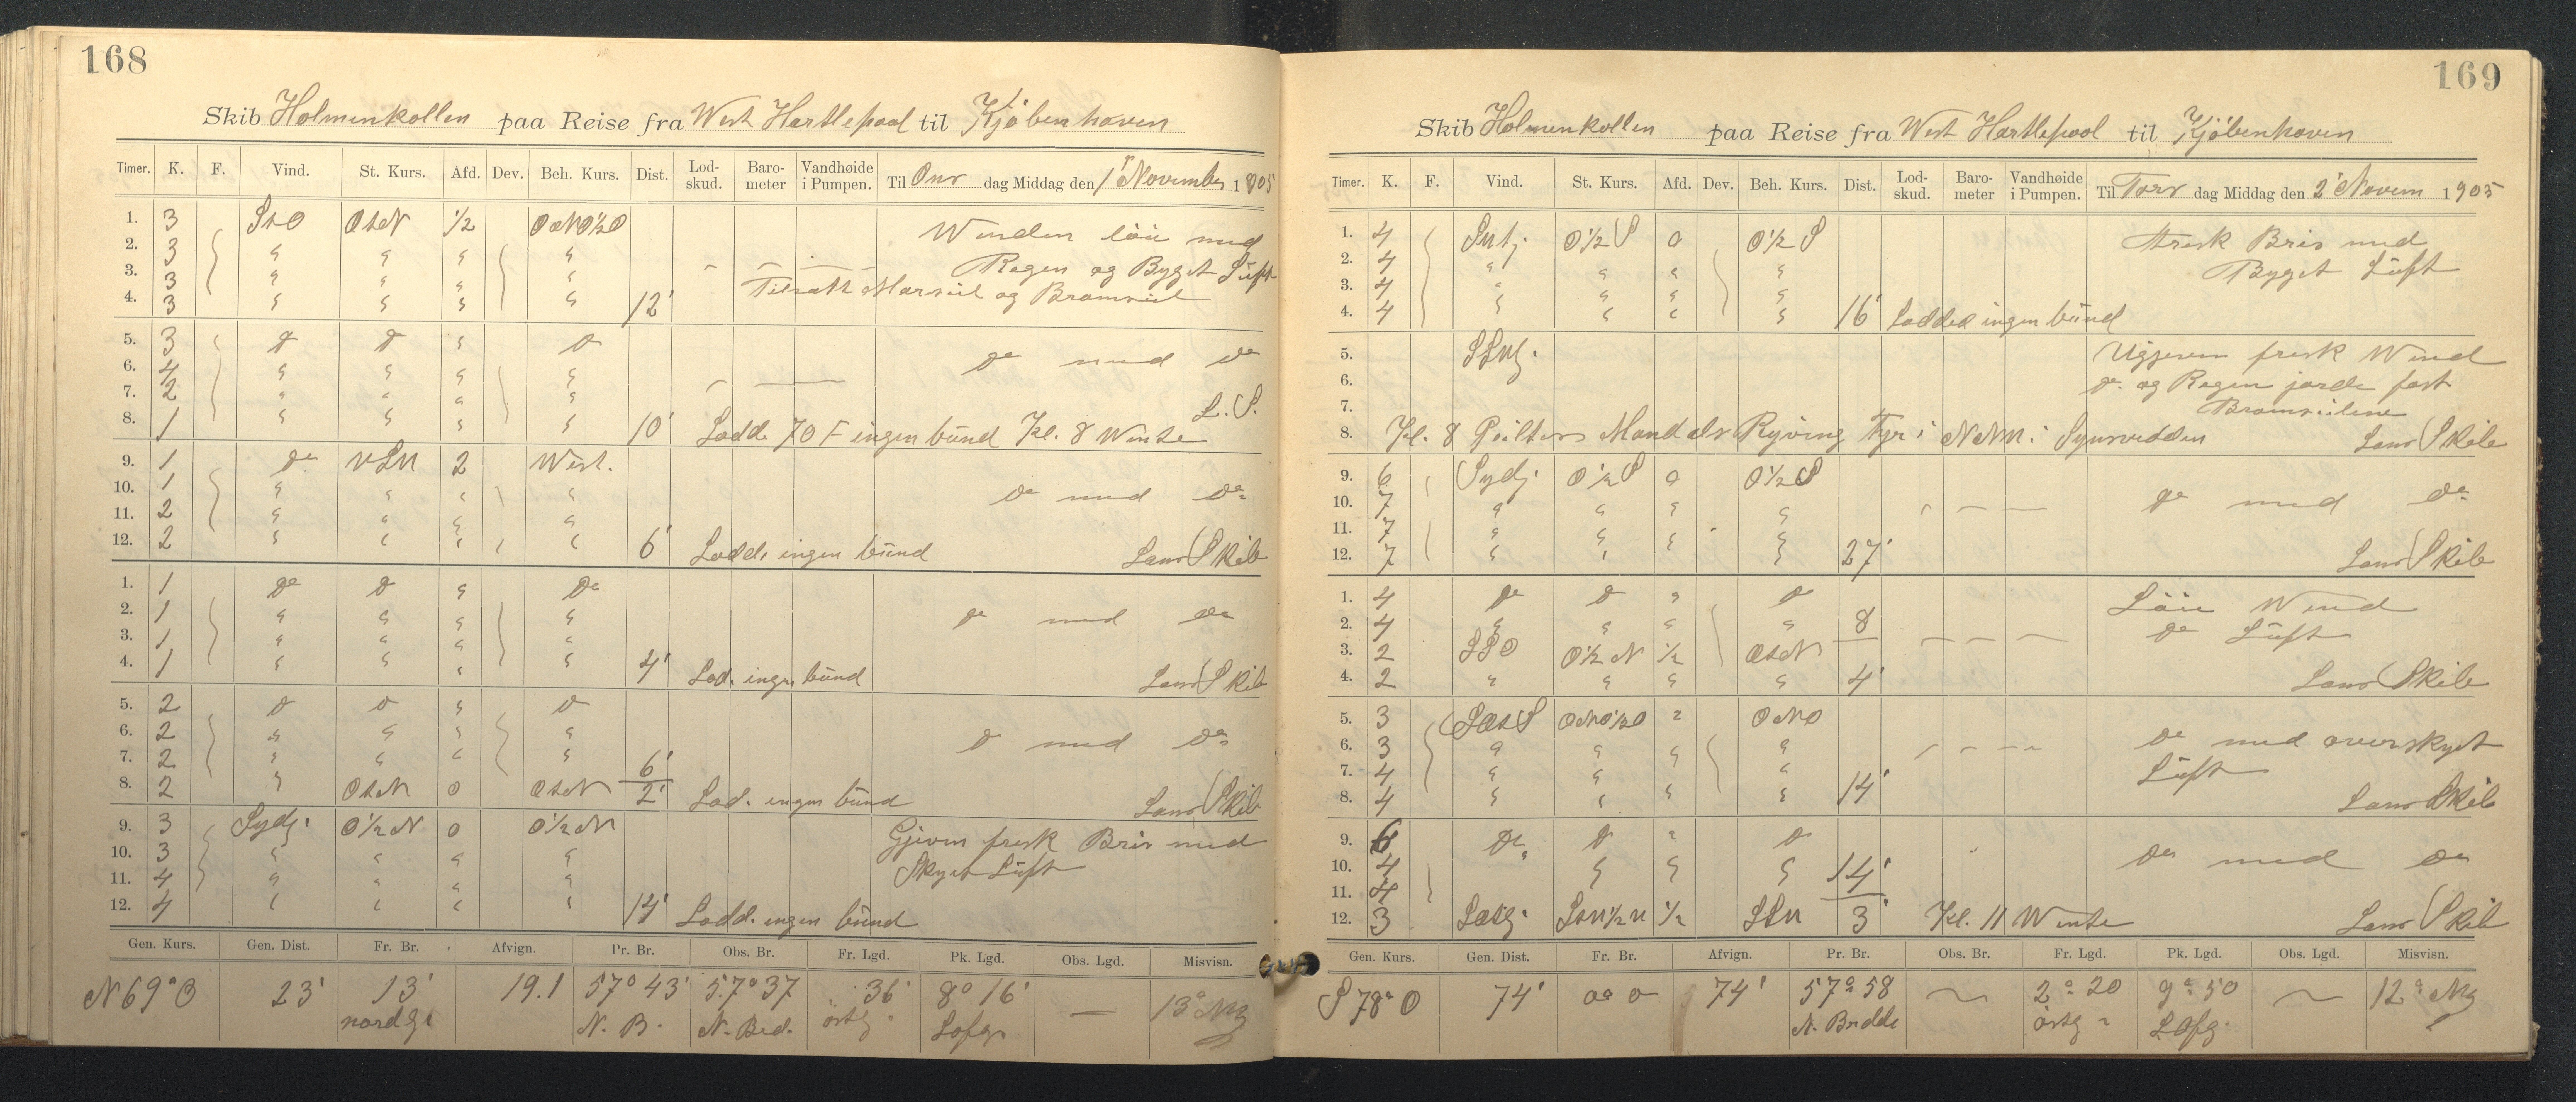 168
Skib Holmenkollen paa Reise fra West Hartlepool til Kjöbenhaven
Timer. K. F. Vind. St. Kurs. Afd. Dev. Beh. Kurs. Dist. Lod-skud. Baro-meter Vandhøide i Pumpen. Til Ons dag Middag den 1 November 1905
1. 3 StO OtN 1/2 ONO1/2O Winden löie med
2. 3 " " " " Regen og Byget Lüft
3. 3 " " " " Tilsatt Marseil og Bramseil
4. 3 " " " " 12'
5. 3 do do " do do med do
6. 4 " " " "
7. 2 " " " " L. S.
8. 1 " " " " 10' Lodde 70 F ingen bünd Kl. 8 Wente
9. 1 do VSW 2 West.
10. 1 " " " " do med do
11. 2 " " " "
12. 2 " " " " 6' Lodde ingen bünd Lans Skib
1. 1 do do " do
2. 1 " " " " do med do
3. 1 " " " "
4. 1 " " " " 4' Lod. ingen bünd Lans Skib
5. 2 do do " do
6. 2 " " " " do med do
7. 2 " " " " 6'
8. 2 " OtN 0 OtN 2' Lod. ingen bünd Lans Skib
9. 3 Sydl. O1/2N 0 O1/2N Gjeven fresk Bris med
10. 3 " " " " Skyet Lüft
11. 4 " " " "
12. 4 " " " " 14' Lodd. ingen bünd
Gen. Kurs. Gen. Dist. Fr. Br. Afvign. Pr. Br. Obs. Br. Fr. Lgd. Pk. Lgd. Obs. Lgd. Misvisn.
N69°O 23' 13' 19.1 57°43' 57°37 36' 8°16' — 13° Wg
nordg. N. B. N. Bred. östg. Lofg.
169
Skib Holmenkollen paa Reise fra West Hartlepool til Kjöbenhaven
Timer. K. F. Vind. St. Kurs. Afd. Dev. Beh. Kurs. Dist. Lod-skud. Baro-meter Vandhøide i Pumpen. Til Tors dag Middag den 2 Novem 1905
1. 4 O1/2S 0 O1/2S Fresk Bris med
2. 4 " " " " Byget Lüft
3. 4 " " " "
4. 4 " " " " 16' Lodded ingen bünd
5. fresk Wind
6. do og Regen jorde fast
7. Bramseilene
8. Kl. 8 Mandals Ryving Fyr i NNW. i Synsvidden Lans Skib
9. 6 Sydl. O1/2S 0 O1/2S
10. 7 " " " " do med do
11. 7 " " " "
12. 7 " " " " 27' Lans Skib
1. 4 do do " do Löie Wind
2. 4 " " " " 8 do Lüft
3. 2 SSO O1/2N 1/2 OtN
4. 2 " " " " 4' Lans Skib
5. 3 SOtS ONO1/2O " ONO
6. 3 " " " " do med overskyet
7. 4 " " " " Lüft
8. 4 " " " " 14' Lans Skib
9. 6 do do " do
10. 4 " " " 14' do med do
11. 4
12. 3 1/2 SSW 3' Kl. 11 Wente Lans Skib
Gen. Kurs. Gen. Dist. Fr. Br. Afvign. Pr. Br. Obs. Br. Fr. Lgd. Pk. Lgd. Obs. Lgd. Misvisn.
S78°O 74' 0° 0 74' 57°58 2°20 9°50 12° Wg
N. Bredde östg Lofg.